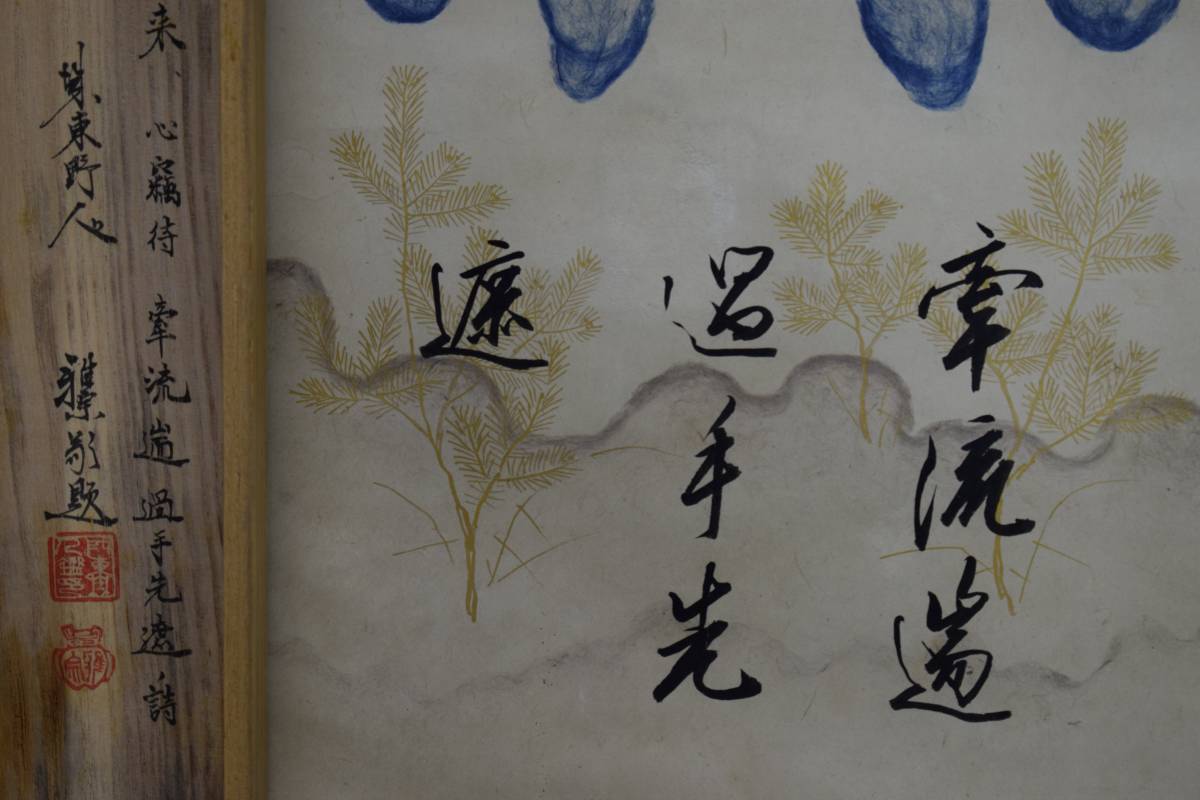 牽流遄
過手先
遮
来、心竊待 牽流遄過手先遮ノ詩
東野人 雅 敬題